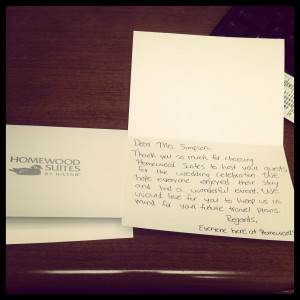 HOMEWOOD
SUITES
BY HILTON
Dear Mrs. Simpson,
Thank you so much for choosing
Homewood Suites to host your guests
for the wedding celebration. We
hope everyone enjoyed their stay
and had a wonderful event. We
would love for you to keep us in
mind for your future travel plans.
Regards,
Everyone here at Homewood